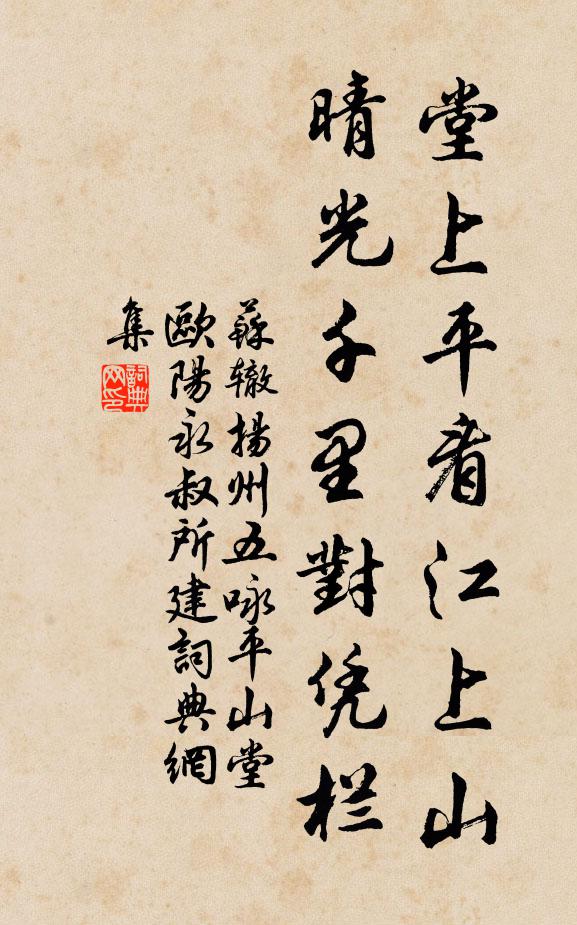 堂上平看江上山
晴光千里對凭栏
蘇辙揚州五咏平山堂
歐陽永叔所建詞典網
集
詞典
网印